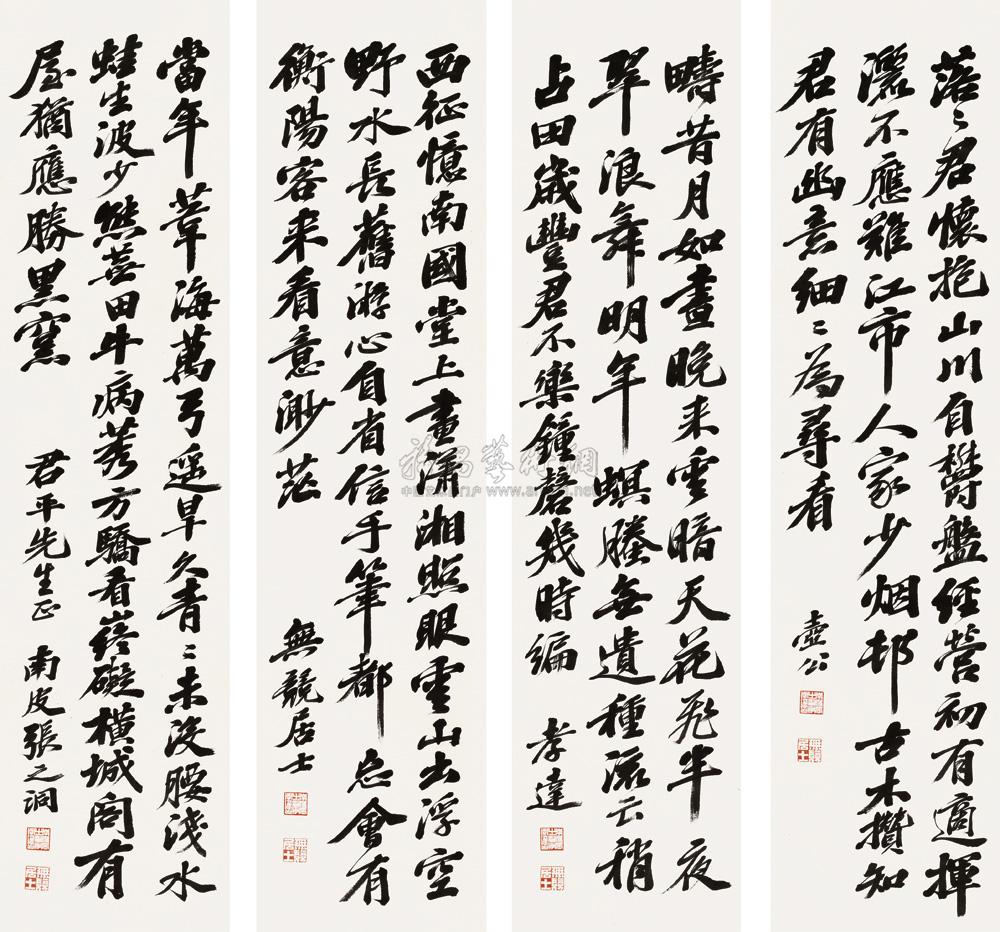 落〻君懷抱山川自欝盤經營初有適揮
灑不應難江市人家少烟邨古木攢知
君有幽意細〻為尋看
壺公
疇昔月如晝晚来雲暗天花飛半夜
翠浪舞明年螟螣無遺種流亡稍
占田歲豐君不樂鐘磬幾時編
孝達
西征憶南國堂上畫瀟湘照眼雲山出浮空
野水長舊游心自省信手筆都忘會有
衡陽客来看意渺茫
無競居士
當年葦海萬弓遥旱久青〻未没腰淺水
蛙生波少態荒田牛病莠方驕看
橫城閣有
屋猶應勝黑窯
君平先生正
南皮張之洞